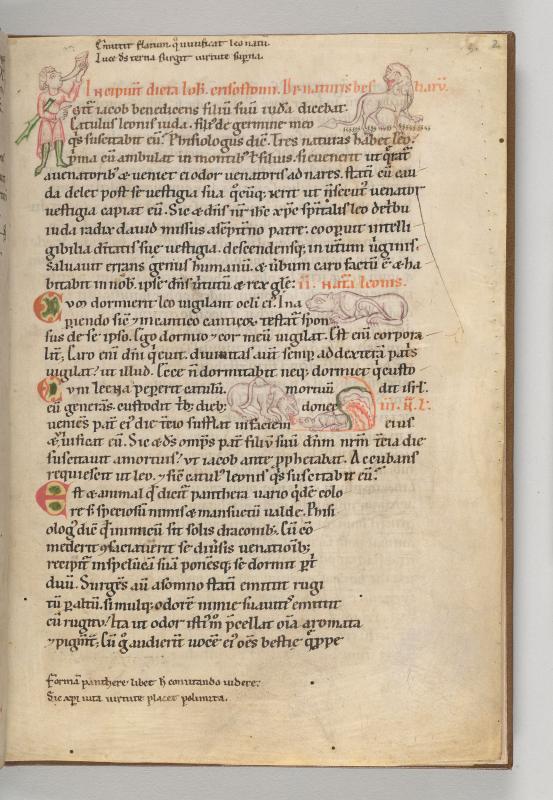 Emittit flatum. q' vivificat leo natu.
Luce d's terna surgit virtute sup'na.
2
Incipiunt dicta Ioh. crisostomi. De naturis bes tiaru.
Etei iacob benedicens filiu suu iuda dicebat.
Catulus leonis iuda. fili' de germine meo
q's suscitabit eu. Phisiologus dic. Tres naturas habet leo.
p'ma eu ambulat in montib' t siluis. si euenerit ut q'rat'
a uenatorib' & ueniet ei odor uenatoris ad nares. stati cu cau
da delet post se uestigia sua q'cuq; ierit ut n sciens uenator
uestigia capiat eu. Sic & d'ns n'r ih'c xp'c sp'italis leo de tribu
iuda radix dauid missus a sepit'no patre. cooperuit intelli
gibilia deitatis sue uestigia. descendensq; in uterum uirginis.
saluauit errans genus humanu. & uerbum caro factu e & ha
bitauit in nob. ipse d'ns uirtutu & rex gle. ii. nat'a leonis.
Cum dormierit leo uigilant oculi ei'. In a
periendo sic & in cantico canticor. testat' spon
sus de se ipso. Ego dormio & cor meu uigilat. Est eni corpora
lit. Caro eni d'ni q'euit. diuinitas aut semp ad dextera pat's
uigilat. ut illud. Ecce n dormitabit neq; dormiet q' custo
Cum leena pepererit catulu. mortuu dit isrl.
eu generat. custodit trib; dieb; donec iii. N. L.
uenies pat' ei' die tcio sufflat in faciem eius
& uiuficat eu. Sic & d's omps pat' filiu suu d'nm nr'm tcia die
suscitauit a mortuis. ut iacob ante pphetabat. Accubans
requiescit ut leo. & sic catul' leonis q's suscitabit eu.
Est & animal q'd dicit' panthera uario q'de colo
re s' speciosu nimis & mansuetu ualde. Phisi
olog' dic q' inimicu sit solis draconib'. Cu co
mederit & saciauerit se diuersis uenatioib;
recipit in speluca sua ponesq; se dormit p't
duu. Surges aut a somno stati emittit rugi
tu p altu. simulq; odore nimie suauit' emittit
cu rugitu. Ita ut odor isti'm p'cellat o'ia aromata
& pigmt. Cu g' audierit uoce ei' oes bestie q'ppe
Forma panthere libet h'c comitando uidere.
Sic xp'i uita uirtute placet polimita.